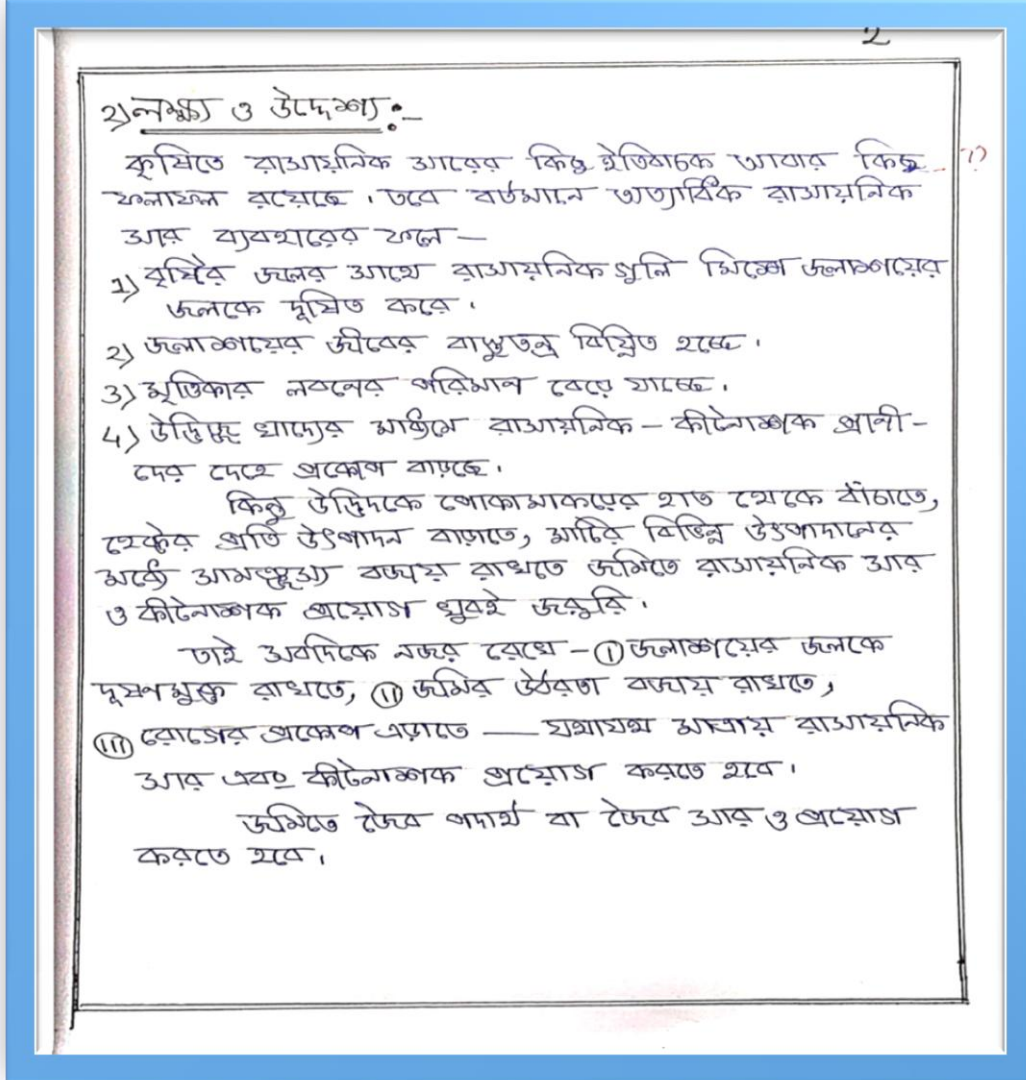 ২
২) লক্ষ্য ও উদ্দেশ্য :-
কৃষিতে রাসায়নিক সারের কিছু ইতিবাচক আবার কিছু
ফলাফল রয়েছে। তবে বর্তমানে অত্যাধিক রাসায়নিক
সার ব্যবহারের ফলে —
1) বৃষ্টির জলের সাথে রাসায়নিক গুলি মিশে জলাশয়ের
জলকে দূষিত করে।
2) জলাশয়ের জীবের বাস্তুতন্ত্র বিঘ্নিত হচ্ছে।
3) মৃত্তিকার লবনের পরিমান বেড়ে যাচ্ছে।
4) উদ্ভিজ্জ খাদ্যের মাধ্যমে রাসায়নিক – কীটনাশক প্রানী –
দের দেহে প্রকোপ বাড়ছে।
কিন্তু উদ্ভিদকে পোকামাকড়ের হাত থেকে বাঁচাতে,
হেক্টর প্রতি উৎপাদন বাড়াতে, মাটির বিভিন্ন উৎপাদানের
মধ্যে সামঞ্জস্য বজায় রাখতে জমিতে রাসায়নিক সার
ও কীটনাশক প্রয়োগ খুবই জরুরি।
তাই সবদিকে নজর রেখে – (i) জলাশয়ের জলকে
দূষণমুক্ত রাখতে, (ii) জমির উর্বরতা বজায় রাখতে,
(iii) রোগের প্রকোপ এড়াতে — যথাযথ মাত্রায় রাসায়নিক
সার এবং কীটনাশক প্রয়োগ করতে হবে।
জমিতে জৈব পদার্থ বা জৈব সার ও প্রয়োগ
করতে হবে।